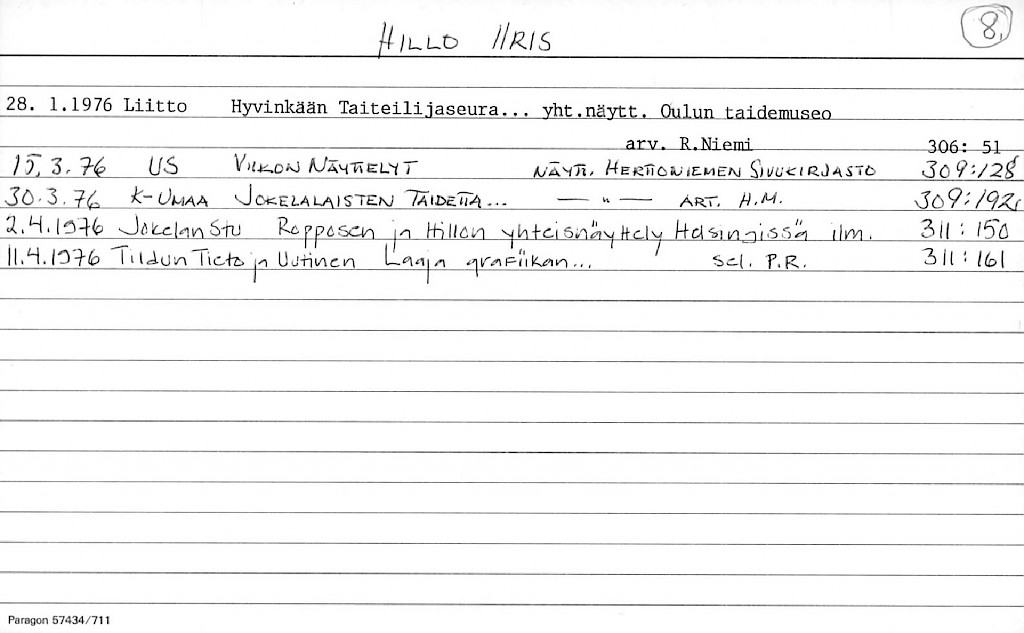 HILLO IIRIS
8.
28. 1.1976 Liitto Hyvinkään Taiteilijaseura... yht.näytt. Oulun taidemuseo
arv. R.Niemi 306: 51
15. 3. 76 US VIIKON NÄYTTELYT NÄYTT. HERTTONIEMEN SIVUKIRJASTO 309:128
30.3.76 K-UMAA JOKELALAISTEN TAIDETTA... — " — ART. H.M. 309:192
2.4.1976 Jokelan Stu Ropposen ja Hillon yhteisnäyttely Helsingissä ilm. 311: 150
11.4.1976 Tiidun Tieto ja Uutinen Laaja grafiikan... sel. P.R. 311: 161
Paragon 57434/711